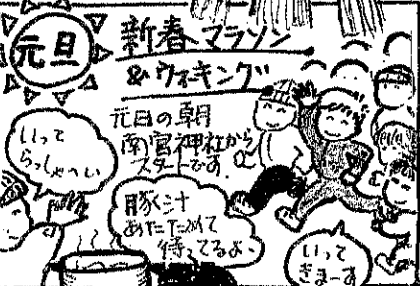 元旦
新春マラソン
&ウォーキング
元日の朝
南宮神社から
スタートです。
いって
らっしゃ〜い
豚汁
あたためて
待ってるよ〜
いって
きまーす